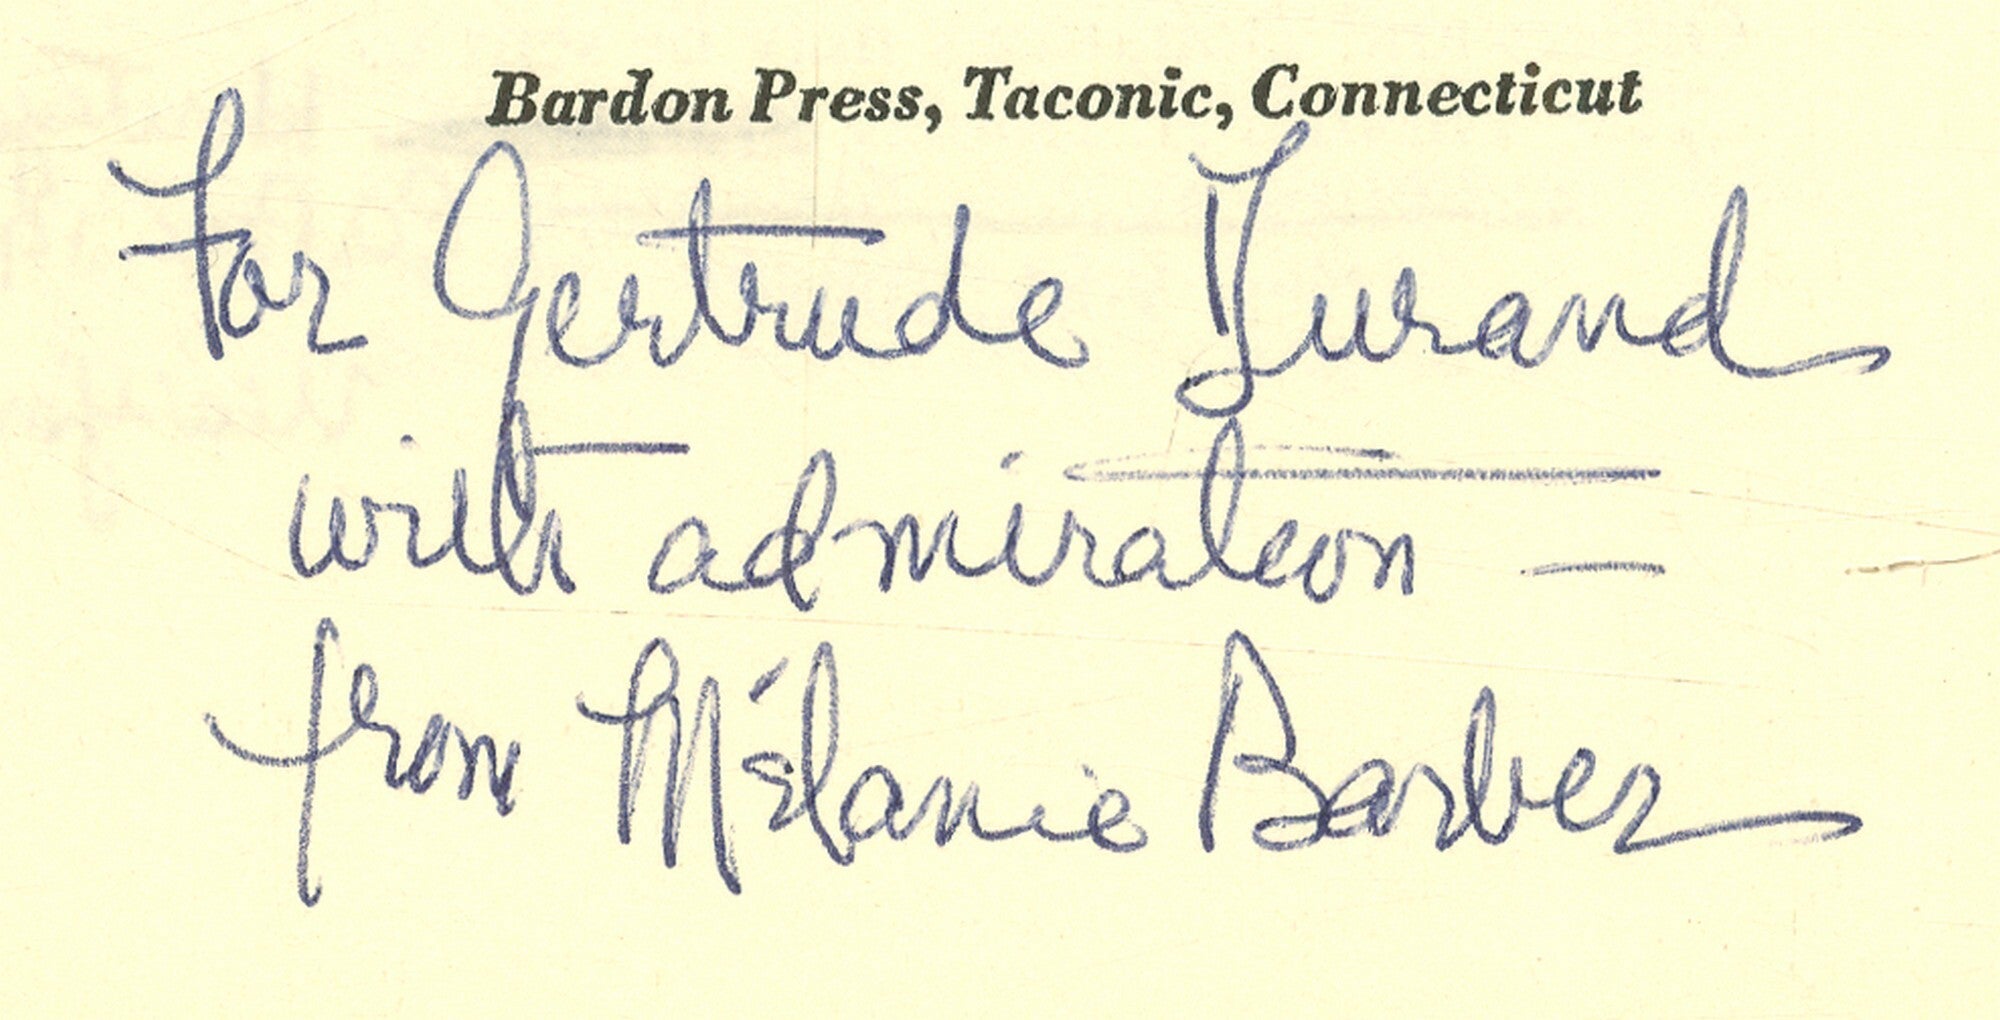 Bardon Press, Taconic, Connecticut
For Gertrude Durand
with admiration —
from Mélanie Barber